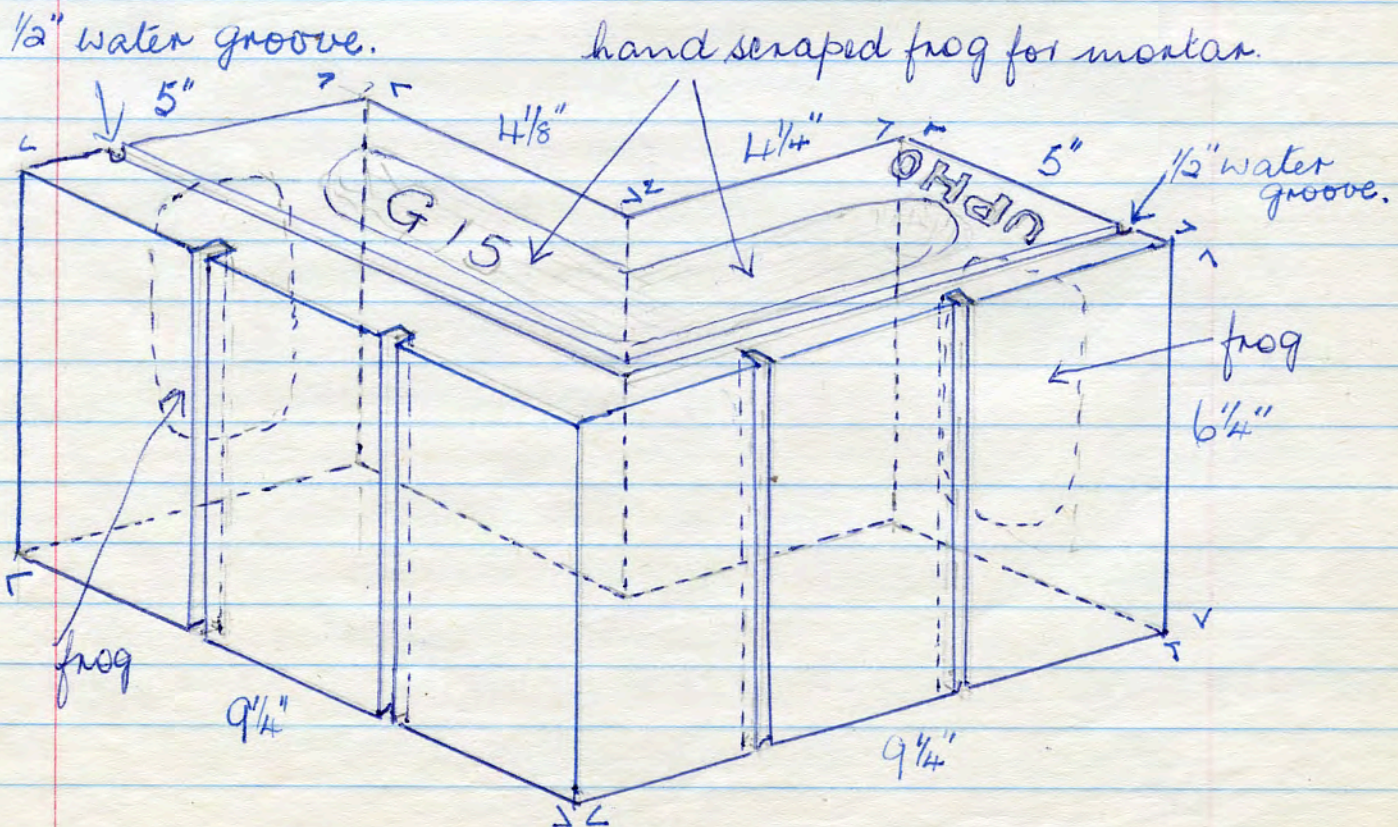 1/2" water groove.
hand scraped frog for mortar.
5"
4 1/8"
4 1/4"
5"
1/2" water
groove.
G15
UPHO
frog
6 1/4"
frog
9 1/4"
9 1/4"